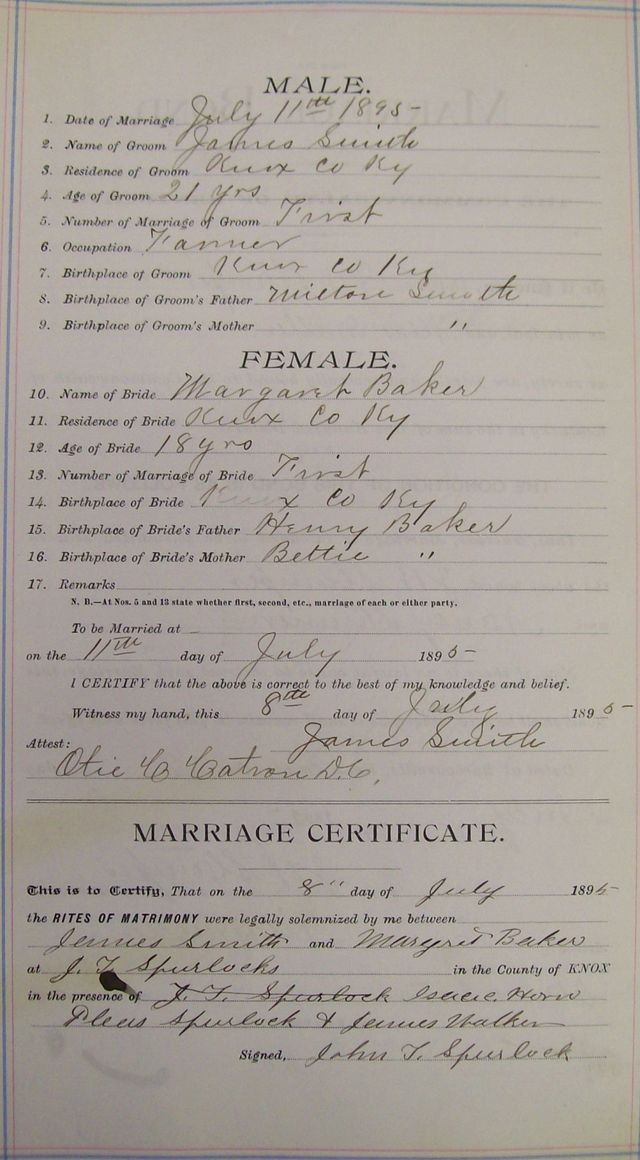 MALE.
1. Date of Marriage July 11th 1895-
2. Name of Groom James Smith
3. Residence of Groom Knox Co Ky
4. Age of Groom 21 yrs
5. Number of Marriage of Groom First
6. Occupation Farmer
7. Birthplace of Groom Knox Co Ky
8. Birthplace of Groom's Father Milton Smith
9. Birthplace of Groom's Mother "
FEMALE.
10. Name of Bride Margaret Baker
11. Residence of Bride Knox Co Ky
12. Age of Bride 18 yrs
13. Number of Marriage of Bride First
14. Birthplace of Bride Knox Co Ky
15. Birthplace of Bride's Father Henry Baker
16. Birthplace of Bride's Mother Bettie "
17. Remarks
N. B.—At Nos. 5 and 13 state whether first, second, etc., marriage of each or either party.
To be Married at
on the 11th day of July 1895-
I CERTIFY that the above is correct to the best of my knowledge and belief.
Witness my hand, this 8th day of July 1895-
James Smith
Attest:
Otie C Catron D.C.
MARRIAGE CERTIFICATE.
This is to Certify, That on the 8" day of July 1895-
the RITES OF MATRIMONY were legally solemnized by me between
James Smith and Margret Baker
at J. T. Spurlocks in the County of KNOX
in the presence of J. T. Spurlock Isaac Horn
Pleas Spurlock & James Walker
Signed, John T. Spurlock